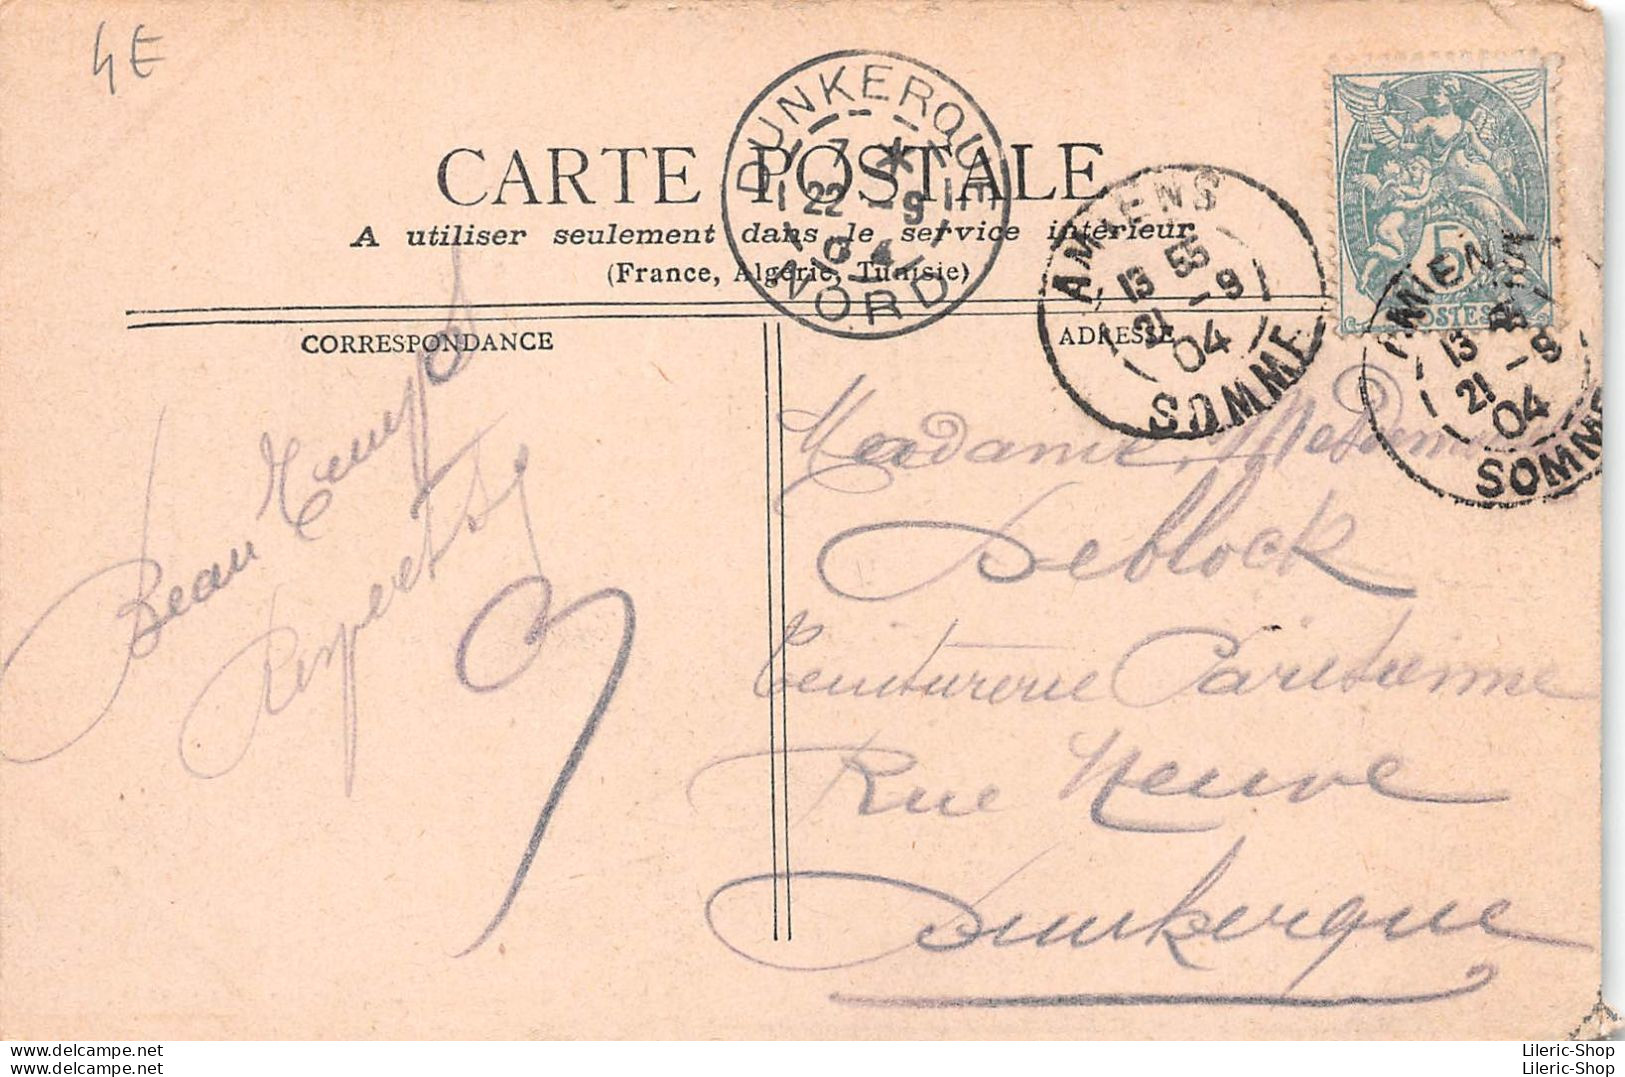 4E
CARTE POSTALE
A utiliser seulement dans le service intérieur
(France, Algérie, Tunisie)
DUNKERQUE
7 *
22 - 9
04
NORD
AMIENS
13 55
21 - 9
04
SOMME
AMIENS
13
21 - 9
04
SOMME
5
POSTES
CORRESPONDANCE
ADRESSE
Beau Temps
Respects
Madame
Deblock
Teinturerie Parisienne
Rue Neuve
Dunkerque
www.delcampe.net
delcampe.net
Lileric-Shop
Lileric-Shop